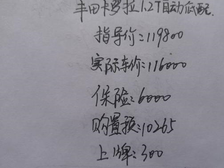 丰田卡罗拉1.2T自动
指导价=119800
实际车价=116000
保险=6000
购置税=10265
上牌=300